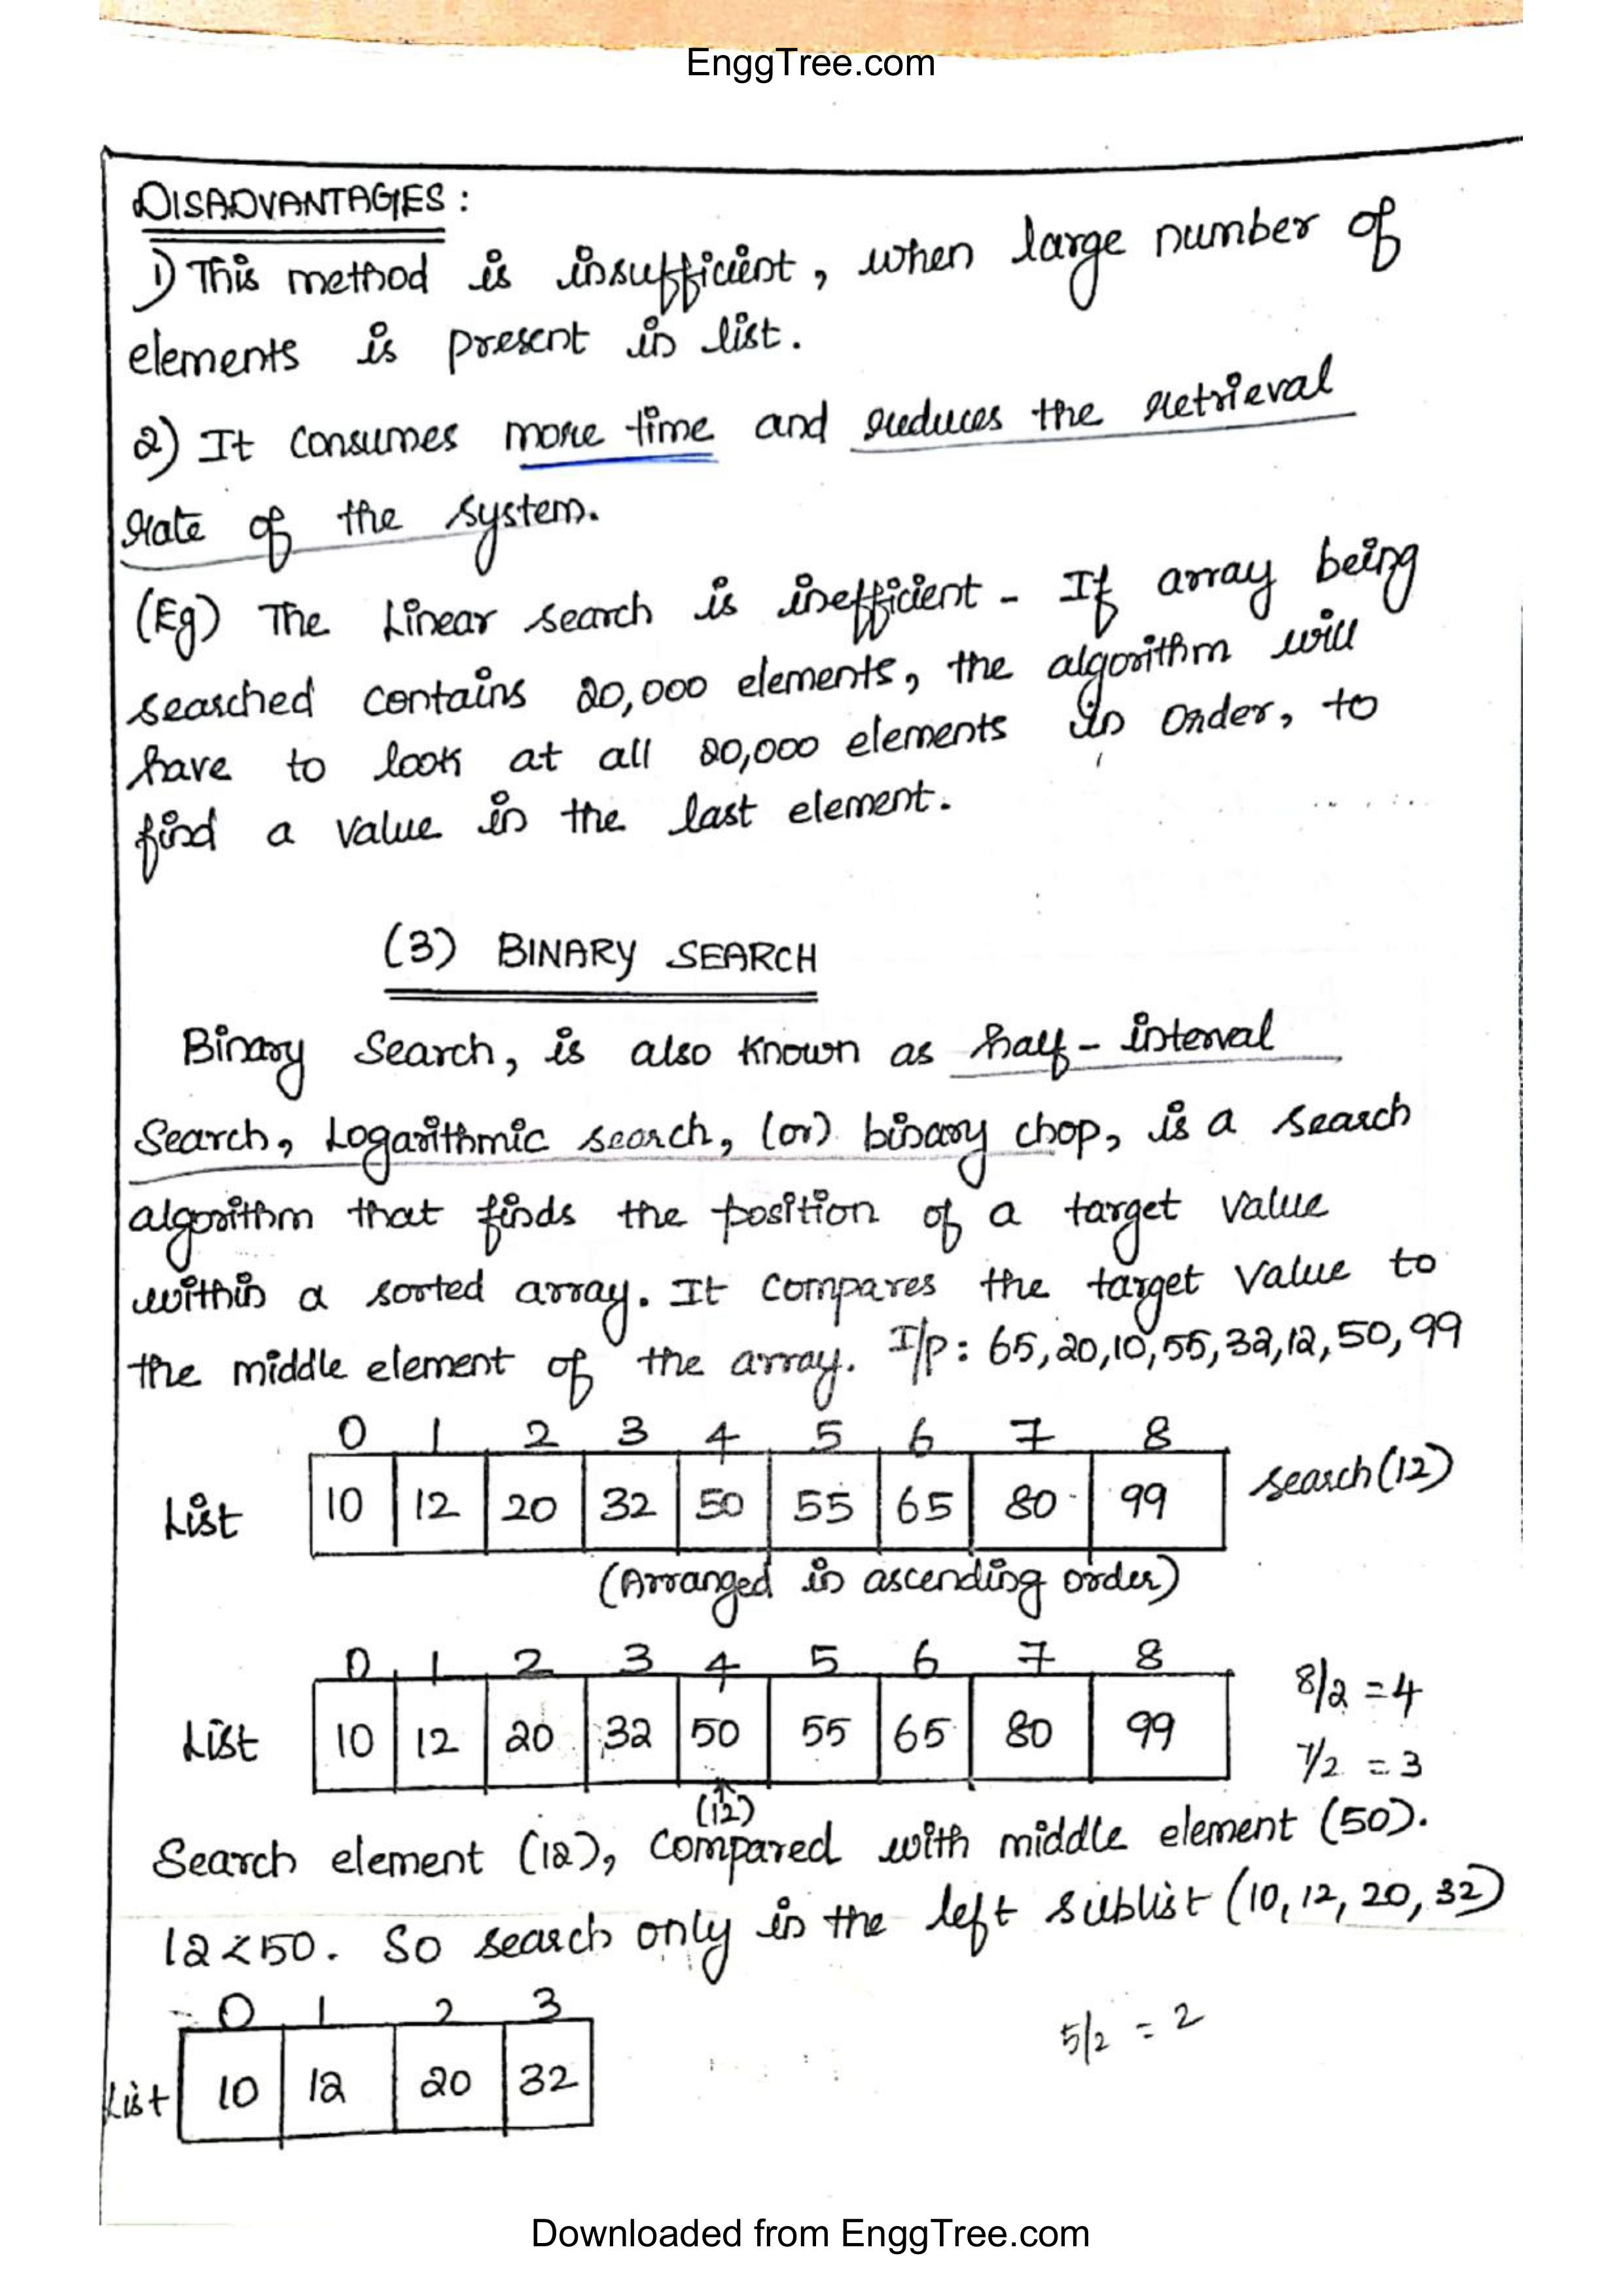 EnggTree.com
DISADVANTAGES:
1) This method is insufficient, when large number of
elements is present in list.
2) It consumes more time and reduces the retrieval
rate of the system.
(Eg) The Linear search is inefficient - If array being
searched contains 20,000 elements, the algorithm will
have to look at all 20,000 elements in order, to
find a value in the last element.
(3) BINARY SEARCH
Binary Search, is also known as half-interval
Search, Logarithmic search, (or) binary chop, is a search
algorithm that finds the position of a target value
within a sorted array. It compares the target value to
the middle element of the array. I/p: 65,20,10,55,32,12,50,99
0 1 2 3 4 5 6 7 8
List 10 12 20 32 50 55 65 80 99 search(12)
(Arranged in ascending order)
0 1 2 3 4 5 6 7 8
8/2 = 4
List 10 12 20 32 50 55 65 80 99
7/2 = 3
(12)
Search element (12), compared with middle element (50).
12<50. So search only in the left sublist (10, 12, 20, 32)
0 1 2 3
5/2 = 2
List 10 12 20 32
Downloaded from EnggTree.com